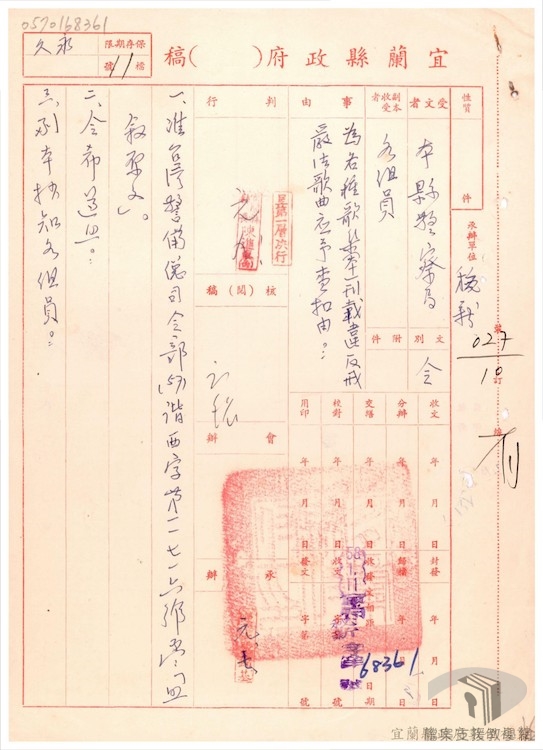 0570168361
保存期限
永久
檔號
11
宜蘭縣政府（ ）稿
性質
件
承辦單位
受文者
本縣警察局
副本收受者
各組員
文別
令
附件
事由
為各種歌集刊載違反戒嚴法歌曲應予查扣由。
收文
年
月
日
分辦
年
月
日
交繕
年
月
日
校對
年
月
日
用印
年
月
日
封發
年
月
日
歸檔
收發文
字第
號
日期
68361
判行
呈第一層決行
核（閱）稿
會辦
承辦
一、准臺灣警備總司令部(57)諧西字第一一七一六號
敘原文」。
二、令希遵照。
三、副本抄知各組員。
027
10
訂
線
檔案支援教學網